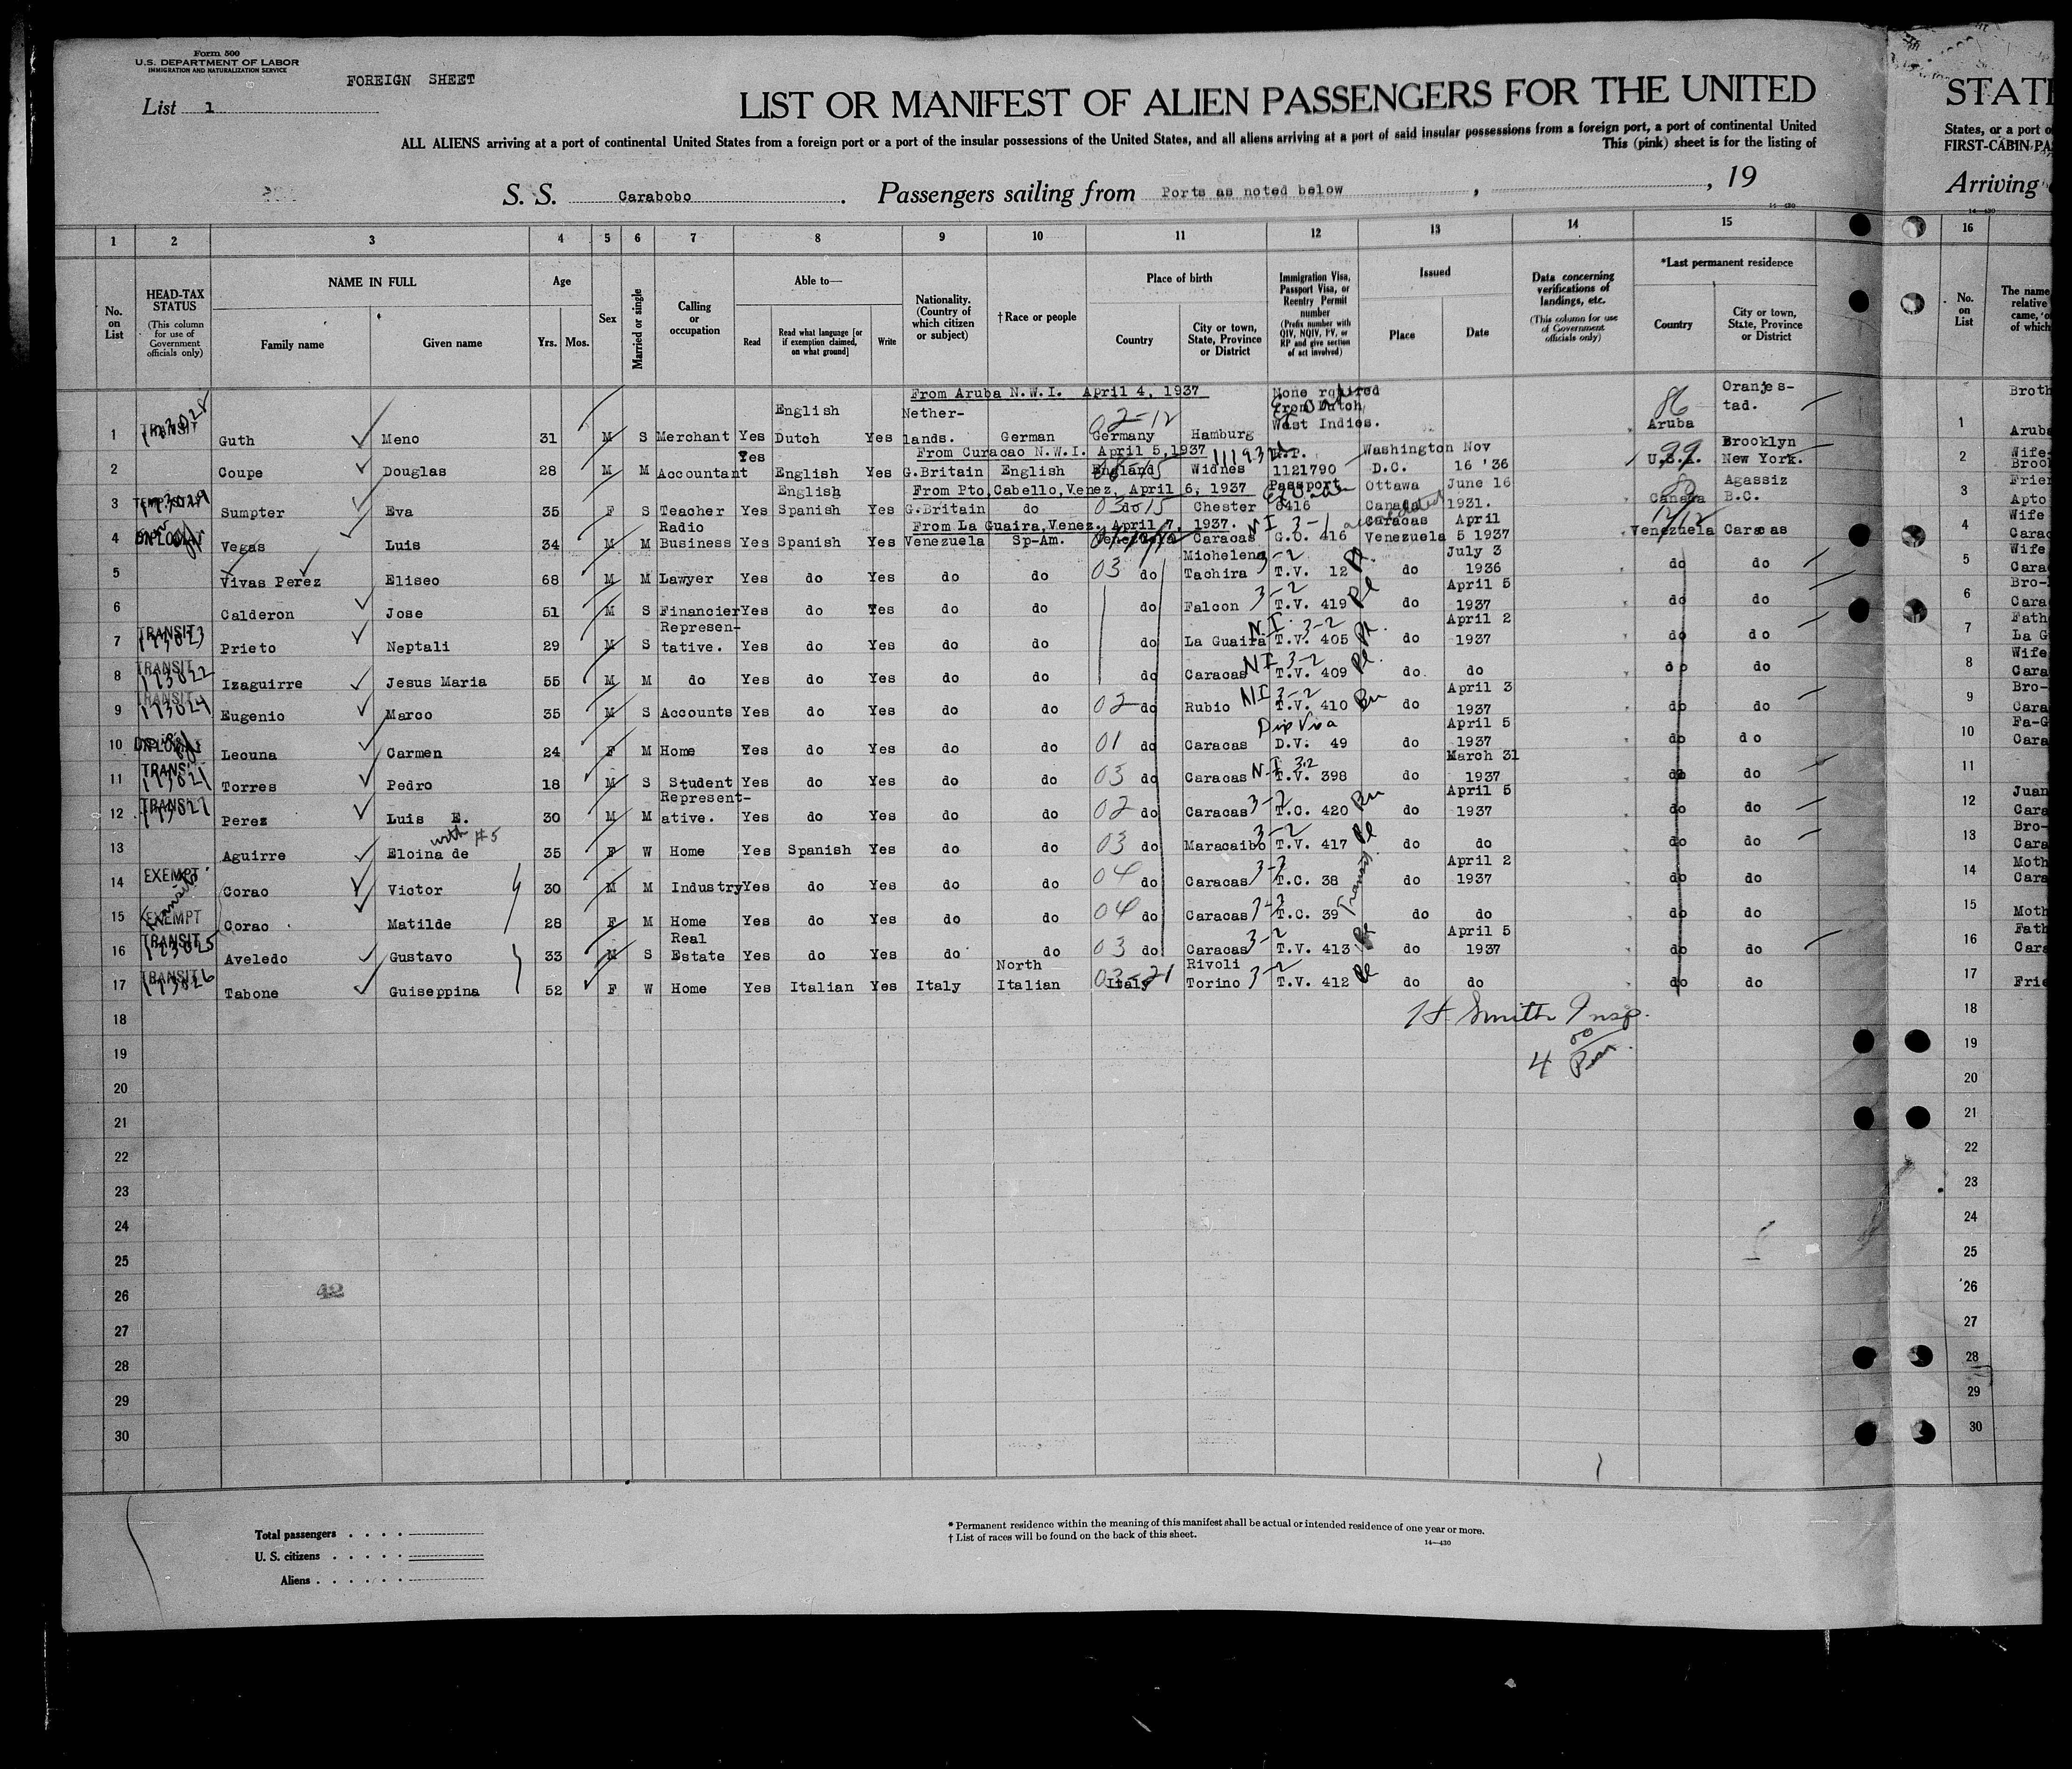 Form 500
U.S. DEPARTMENT OF LABOR
IMMIGRATION AND NATURALIZATION SERVICE
FOREIGN SHEET
List 1
LIST OR MANIFEST OF ALIEN PASSENGERS FOR THE UNITED
ALL ALIENS arriving at a port of continental United States from a foreign port or a port of the insular possessions of the United States, and all aliens arriving at a port of said insular possessions from a foreign port, a port of continental United
This (pink) sheet is for the listing of
S. S. Carabobo. Passengers sailing from Ports as noted below, , 19
14—430
1 2 3 4 5 6 7 8 9 10 11 12 13 14 15
No. on List
HEAD-TAX STATUS (This column for use of Government officials only)
NAME IN FULL Family name Given name
Age Yrs. Mos.
Sex
Married or single
Calling or occupation
Able to— Read Read what language [or if exemption claimed, on what ground] Write
Nationality. (Country of which citizen or subject)
†Race or people
Place of birth Country City or town, State, Province or District
Immigration Visa, Passport Visa, or Reentry Permit number (Prefix number with QIV, NQIV, PV, or RP and give section of act involved)
Issued Place Date
Data concerning verifications of landings, etc. (This column for use of Government officials only)
*Last permanent residence Country City or town, State, Province or District
From Aruba N.W.I. April 4, 1937
1 TRANSIT Guth Meno 31 M S Merchant Yes English Dutch Yes Nether-lands. German Germany Hamburg None rquired from Dutch West Indies. Aruba Oranjes-tad.
From Curacao N.W.I. April 5,1937
2 Coupe Douglas 28 M M Accountant Yes English Yes G.Britain English England Widnes R.P. 1121790 Washington D.C. Nov 16 '36 U.S.A. Brooklyn New York.
From Pto,Cabello,Venez, April 6, 1937
3 Sumpter Eva 35 F S Teacher Yes English Spanish Yes G.Britain do do Chester Passport 6416 Ottawa Canada June 16 1931. Canada Agassiz B.C.
From La Guaira,Venez. April 7, 1937.
4 DIPLOMAT Vegas Luis 34 M M Radio Business Yes Spanish Yes Venezuela Sp-Am. Venezuela Caracas G.O. 416 Caracas Venezuela April 5 1937 Venezuela Caracas
5 Vivas Perez Eliseo 68 M M Lawyer Yes do Yes do do 03 do Michelena Tachira T.V. 12 do July 3 1936 do do
6 Calderon Jose 51 M S Financier Yes do Yes do do do Falcon T.V. 419 do April 5 1937 do do
7 TRANSIT 173023 Prieto Neptali 29 M S Represen-tative. Yes do Yes do do do La Guaira T.V. 405 do April 2 1937 do do
8 TRANSIT 173022 Izaguirre Jesus Maria 55 M M do Yes do Yes do do do Caracas T.V. 409 do do do do
9 TRANSIT 173024 Eugenio Marco 35 M S Accounts Yes do Yes do do 02 do Rubio T.V. 410 do April 3 1937 do do
10 DIPLOMAT Leouna Carmen 24 F M Home Yes do Yes do do 01 do Caracas Dip Visa D.V. 49 do April 5 1937 do do
11 TRANSIT 173021 Torres Pedro 18 M S Student Yes do Yes do do 03 do Caracas T.V. 398 do March 31 1937 do do
12 TRANSIT Perez Luis E. 30 M M Represent-ative. Yes do Yes do do 02 do Caracas T.C. 420 do April 5 1937 do do
with #5
13 Aguirre Eloina de 35 F W Home Yes Spanish Yes do do 03 do Maracaibo T.V. 417 do do do do
14 EXEMPT Corao Victor 30 M M Industry Yes do Yes do do 04 do Caracas T.C. 38 do April 2 1937 do do
15 EXEMPT Corao Matilde 28 F M Home Yes do Yes do do 04 do Caracas T.C. 39 do do do do
16 TRANSIT 173025 Aveledo Gustavo 33 M S Real Estate Yes do Yes do do 03 do Caracas T.V. 413 do April 5 1937 do do
17 TRANSIT 173026 Tabone Guiseppina 52 F W Home Yes Italian Yes Italy North Italian Italy Rivoli Torino T.V. 412 do do do do
18 H. Smith Insp.
19
20
21
22
23
24
25
26 42
27
28
29
30
Total passengers
U. S. citizens
Aliens
* Permanent residence within the meaning of this manifest shall be actual or intended residence of one year or more.
† List of races will be found on the back of this sheet.
14—430
STATE
States, or a port o
FIRST-CABIN PA
Arriving
14—430
16
No. on List
The name relative came, o of which
1 Broth Aruba
2 Wife- Brook
3 Frien Apto
4 Wife Carac
5 Wife Cara
6 Bro- Cara
7 Fath La G
8 Wife Cara
9 Bro- Cara
10 Fa-G Cara
11
12 Juan Cara
13 Bro- Cara
14 Moth Cara
15 Moth
16 Fath Cara
17 Frie
18
19
20
21
22
23
24
25
26
27
28
29
30